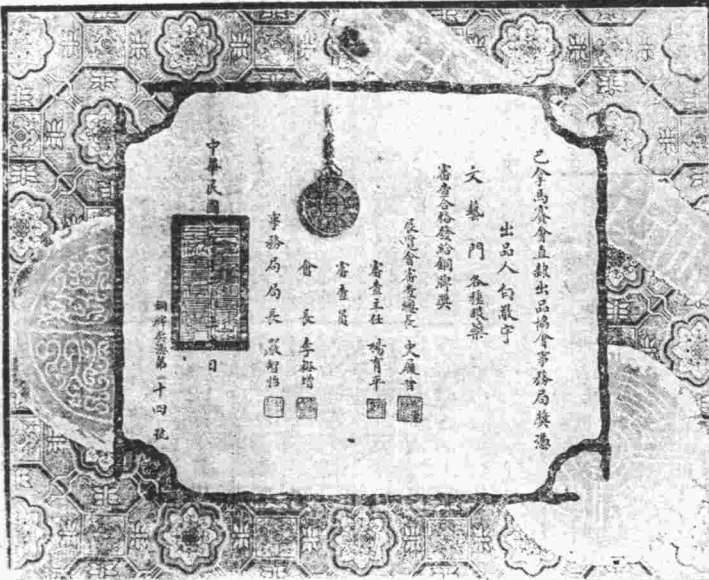 巴拿馬賽會直隸出品協會事務局獎憑
出品人 白敬宇
文藝門 各種眼藥
審查合格發給銅牌獎
展覽會審查總長 史履晉
審查主任 楊育平
審查員
會長 李搢增
事務局局長 嚴智怡
中華民國 日
銅牌獎憑第 十四號